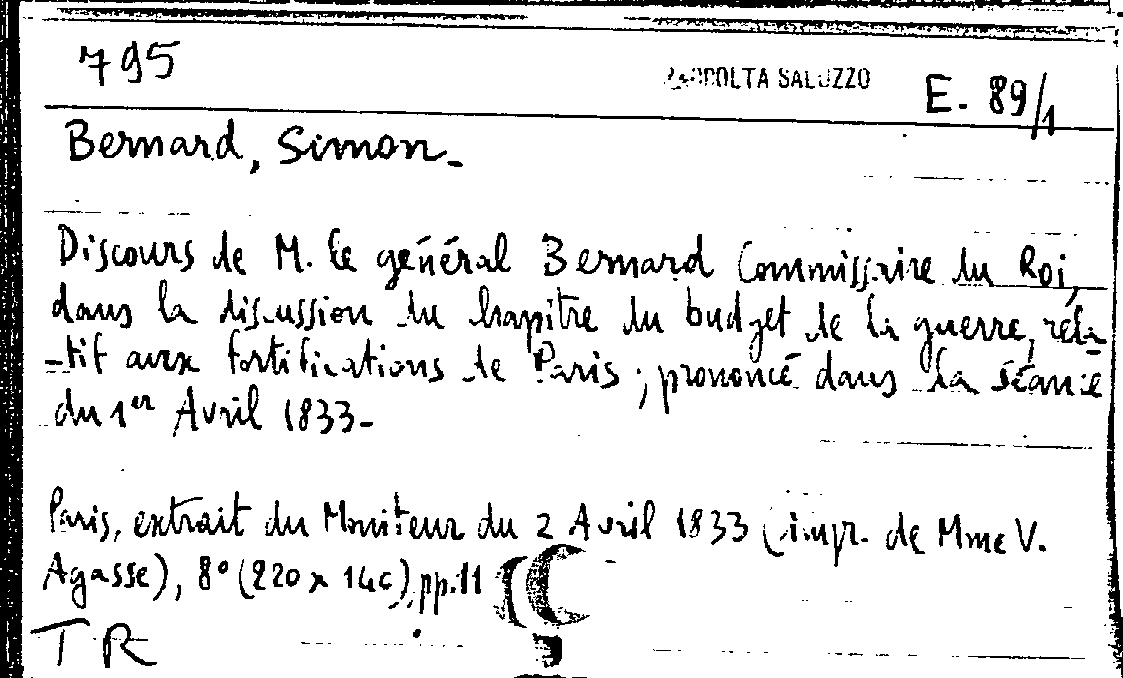 795
RACCOLTA SALUZZO
E. 89/1
Bernard, Simon.
Discours de M. le général Bernard Commissaire du Roi,
dans la discussion du chapitre du budget de la guerre, rela-
-tif aux fortifications de Paris; prononcé dans la séance
du 1er Avril 1833-
Paris, extrait du Moniteur du 2 Avril 1833 (impr. de Mme V.
Agasse), 8° (220 x 140), pp. 11
TR